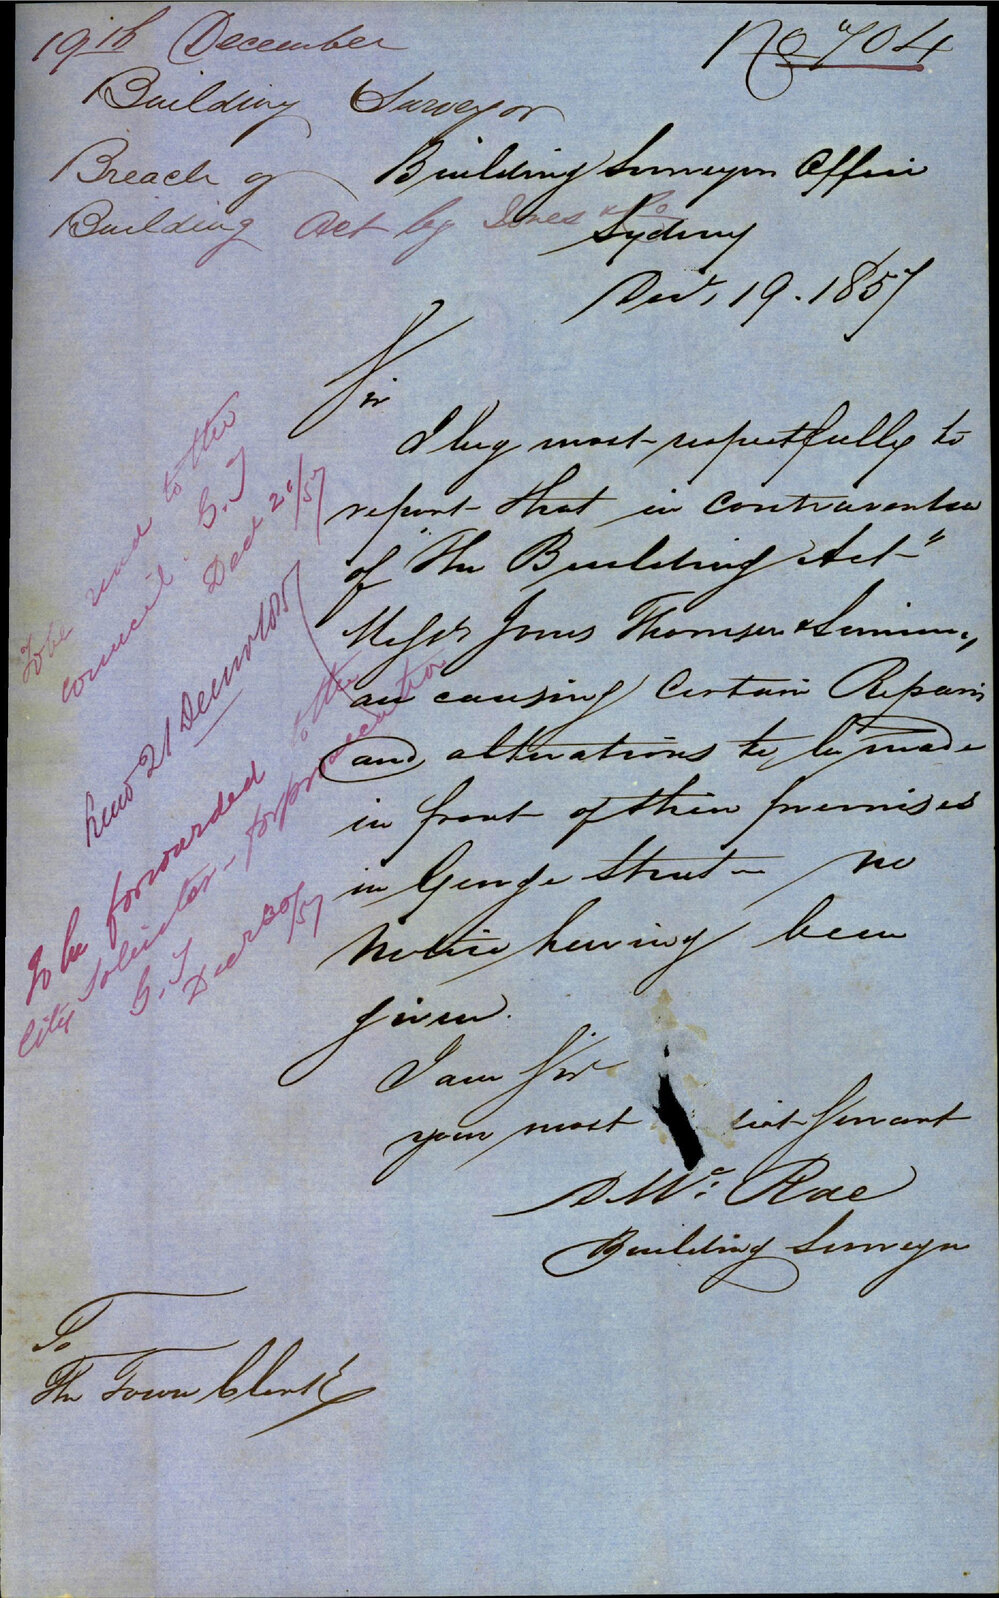 19th December
No 704
Building Surveyor
Breach of
Building Act by Jones & Co
Building Surveyors Office
Sydney
Decr. 19. 1857
Sir
I beg most respectfully to
report that in contravention
of "The Building Act"
Messrs Jones Thomson &
are causing Certain Repairs
and alterations to be made
in front of their premises
in George Street - No
Notice having been
given.
I am Sir
your most Servant
D. Mc. Rae
Building Surveyor
To
The Town Clerk
To be read to the
Council. G.T
Decr 20/57
Read 21 Decr 1857
To be forwarded to the
City Solicitor - for prosecution
G.T
Decr 30/57